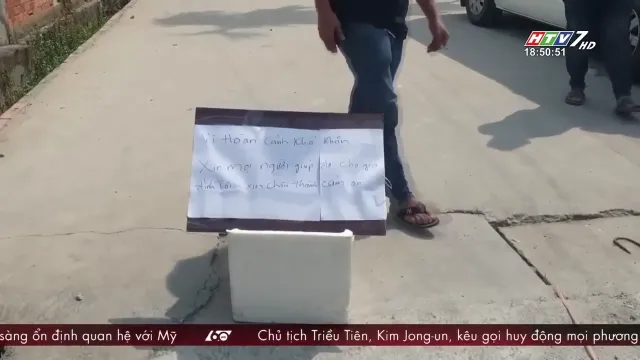 HTV7 HD
18:50:51
Vì Hoàn Cảnh Khó Khăn
Xin mọi người giúp đỡ cho gia
đình tôi xin chân thành cảm ơn
sàng ổn định quan hệ với Mỹ
60
Chủ tịch Triều Tiên, Kim Jong-un, kêu gọi huy động mọi phương